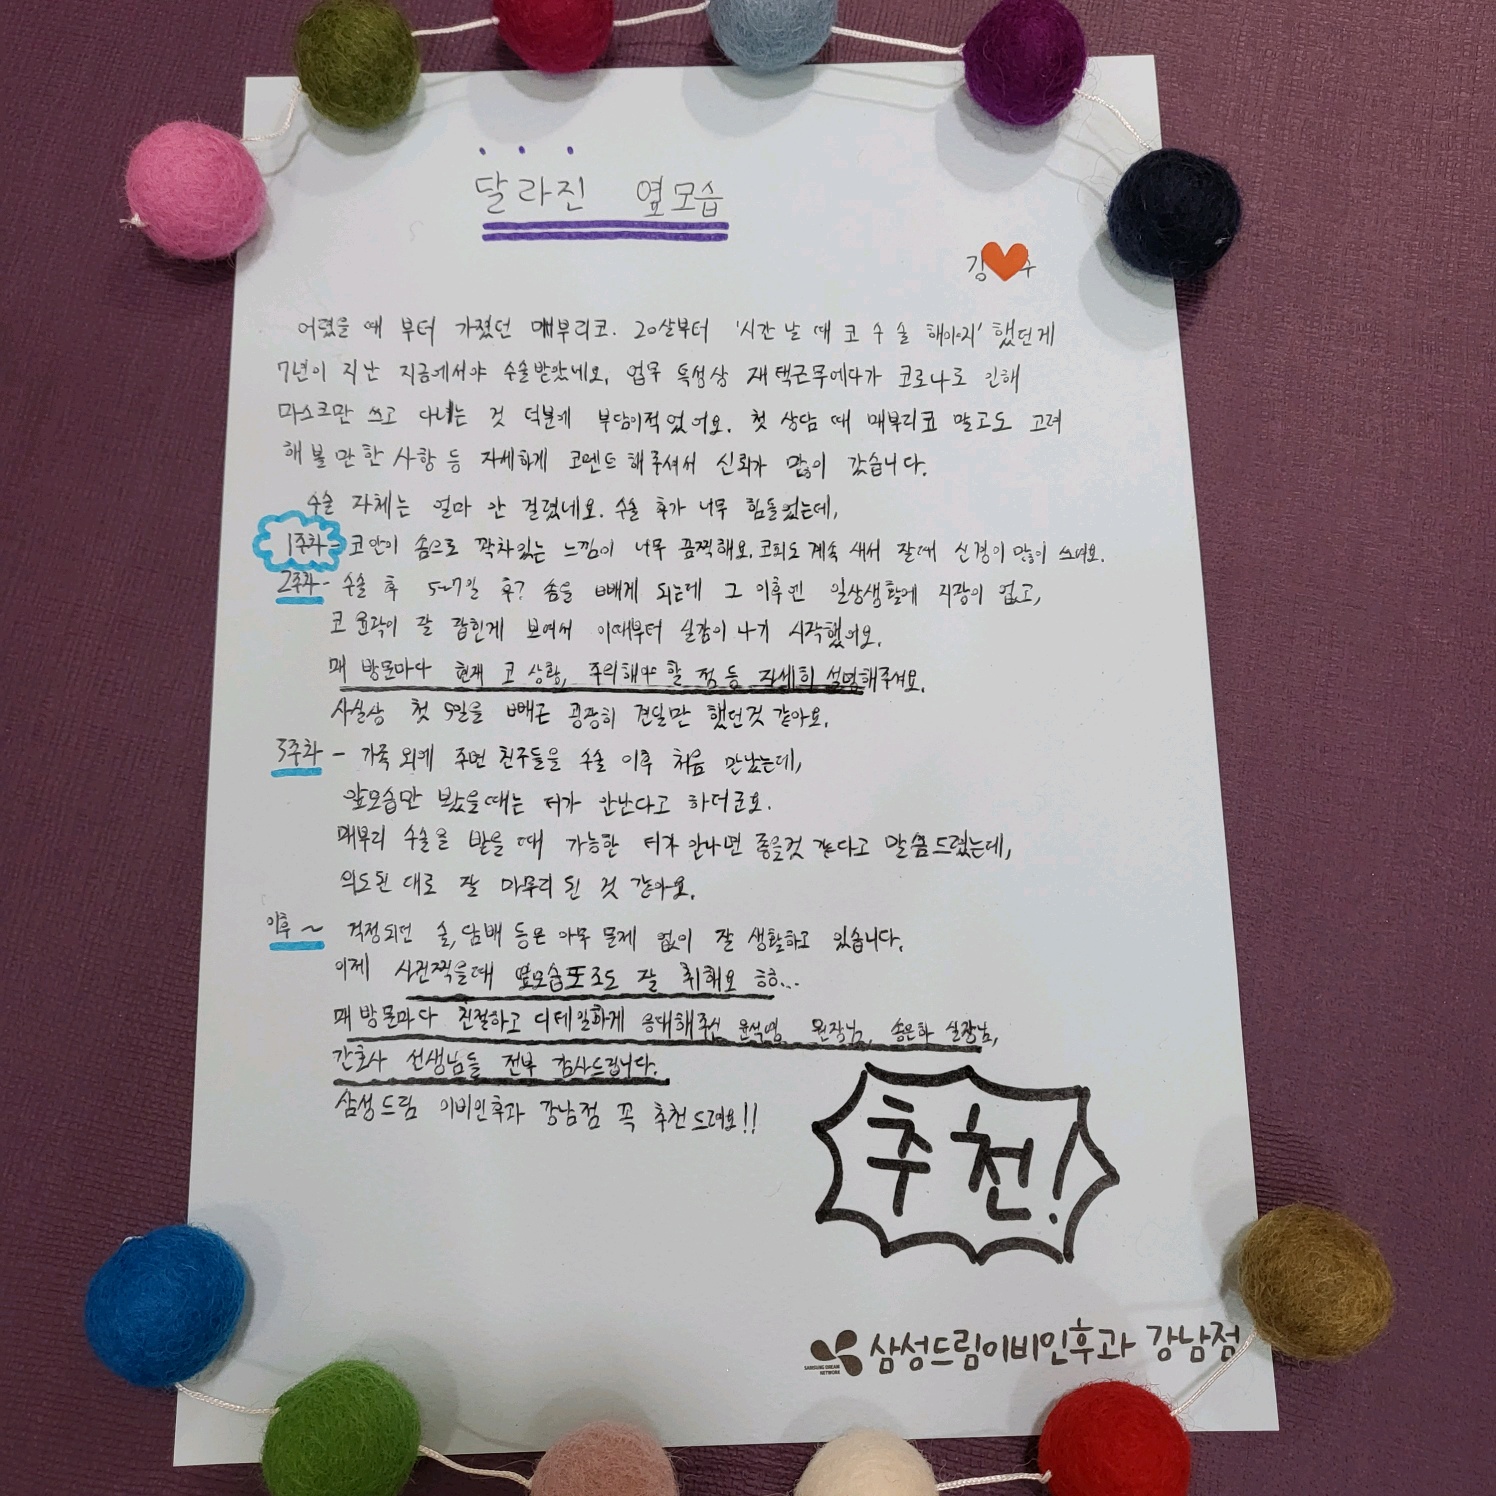 달라진 옆모습
김 수
어렸을 때 부터 가졌던 매부리코. 20살부터 '시간 날 때 코 수술 해야지' 했던게
7년이 지난 지금에서야 수술받았네요. 업무 특성상 재택근무에다가 코로나로 인해
마스크만 쓰고 다니는 것 덕분에 부담이적었어요. 첫 상담 때 매부리코 말고도 고려
해 볼 만 한 사항 등 자세하게 코멘트 해주셔서 신뢰가 많이 갔습니다.
수술 자체는 얼마 안 걸렸네요. 수술 후가 너무 힘들었는데,
1주차 - 코안이 솜으로 꽉차있는 느낌이 너무 끔찍해요. 코피도 계속 새서 잘때 신경이 많이 쓰여요.
2주차 - 수술 후 5~7일 후? 솜을 빼게 되는데 그 이후엔 일상생활에 지장이 없고,
코 윤곽이 잘 잡힌게 보여서 이때부터 실감이 나기 시작했어요.
매 방문마다 현재 코 상황, 주의해야 할 점 등 자세히 설명해주셔요.
사실상 첫 5일을 빼곤 굉장히 견딜만 했던것 같아요.
3주차 - 가족 외에 주변 친구들을 수술 이후 처음 만났는데,
앞모습만 봤을때는 티가 안난다고 하더군요.
매부리 수술을 받을 때 가능한 티가 안나면 좋을것 같다고 말씀드렸는데,
의도된 대로 잘 마무리 된 것 같아요.
이후 ~ 걱정되던 술, 담배 등은 아무 문제 없이 잘 생활하고 있습니다.
이제 사진찍을때 옆모습포즈도 잘 취해요 ㅎㅎ...
매 방문마다 친절하고 디테일하게 응대해주신 윤석영 원장님, 송은하 실장님,
간호사 선생님들 전부 감사드립니다.
삼성드림 이비인후과 강남점 꼭 추천드려요!!
추천!
SAMSUNG DREAM NETWORK
삼성드림이비인후과 강남점